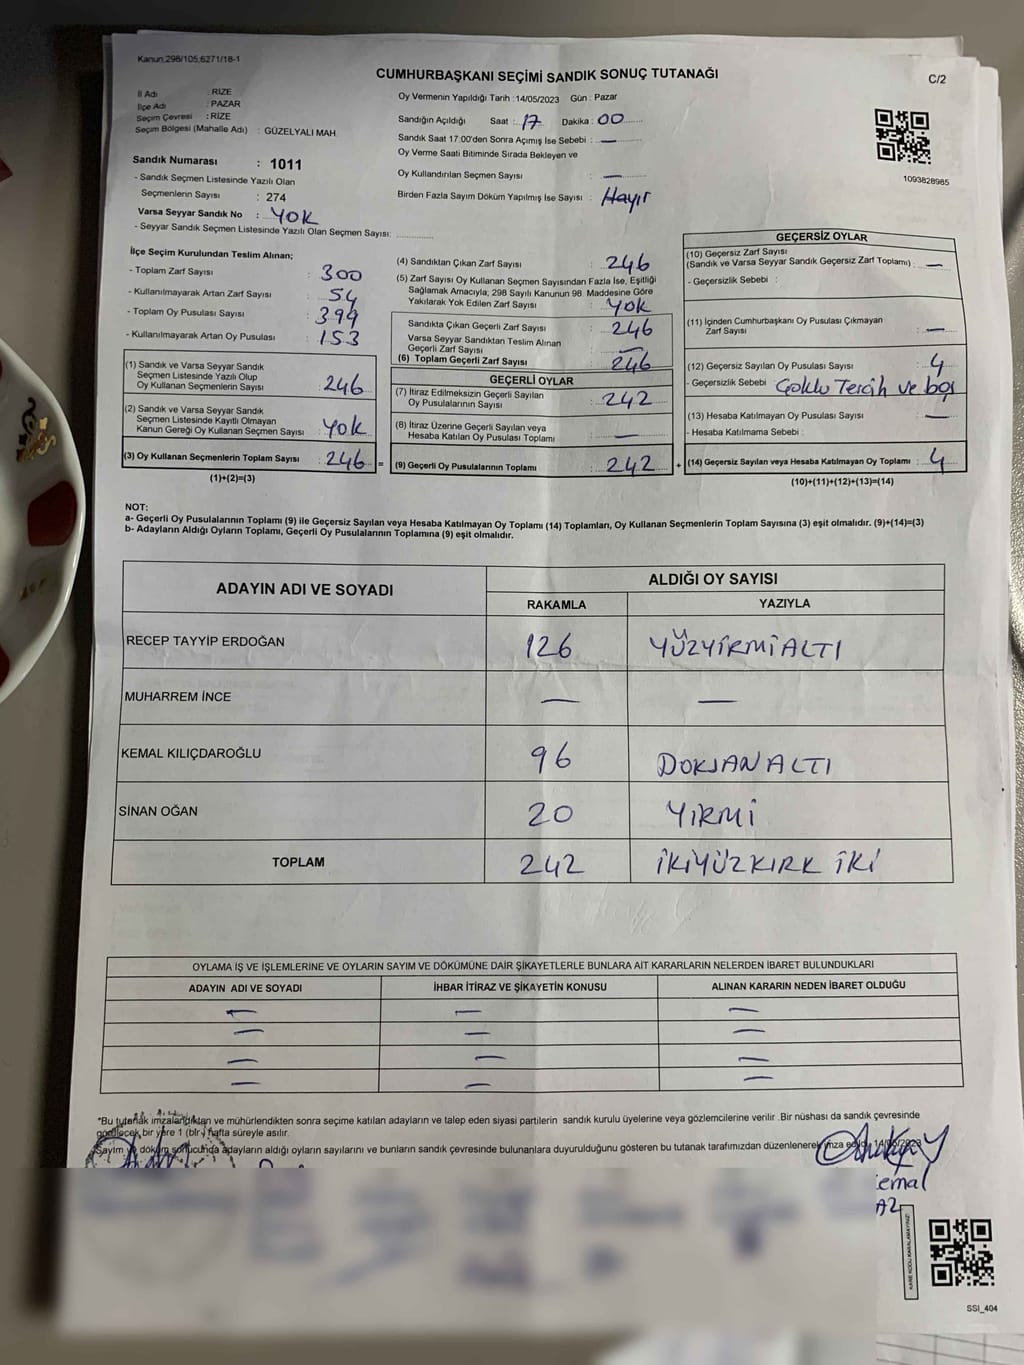 Kanun,298/105,6271/18-1
CUMHURBAŞKANI SEÇİMİ SANDIK SONUÇ TUTANAĞI
C/2
İl Adı : RİZE
İlçe Adı : PAZAR
Seçim Çevresi : RİZE
Seçim Bölgesi (Mahalle Adı) : GÜZELYALI MAH.
Oy Vermenin Yapıldığı Tarih : 14/05/2023 Gün : Pazar
Sandığın Açıldığı Saat : 17 Dakika : 00
Sandık Saat 17:00'den Sonra Açımış İse Sebebi : —
Oy Verme Saati Bitiminde Sırada Bekleyen ve
Oy Kullandırılan Seçmen Sayısı : —
Birden Fazla Sayım Döküm Yapılmış İse Sayısı : Hayır
1093828985
Sandık Numarası : 1011
- Sandık Seçmen Listesinde Yazılı Olan
Seçmenlerin Sayısı : 274
Varsa Seyyar Sandık No : YOK
- Seyyar Sandık Seçmen Listesinde Yazılı Olan Seçmen Sayısı:
İlçe Seçim Kurulundan Teslim Alınan;
- Toplam Zarf Sayısı : 300
- Kullanılmayarak Artan Zarf Sayısı : 54
- Toplam Oy Pusulası Sayısı : 399
- Kullanılmayarak Artan Oy Pusulası : 153
(1) Sandık ve Varsa Seyyar Sandık
Seçmen Listesinde Yazılı Olup
Oy Kullanan Seçmenlerin Sayısı : 246
(2) Sandık ve Varsa Seyyar Sandık
Seçmen Listesinde Kayıtlı Olmayan
Kanun Gereği Oy Kullanan Seçmen Sayısı : YOK
(3) Oy Kullanan Seçmenlerin Toplam Sayısı : 246 =
(1)+(2)=(3)
(4) Sandıktan Çıkan Zarf Sayısı : 246
(5) Zarf Sayısı Oy Kullanan Seçmen Sayısından Fazla İse, Eşitliği
Sağlamak Amacıyla; 298 Sayılı Kanunun 98. Maddesine Göre
Yakılarak Yok Edilen Zarf Sayısı : YOK
Sandıkta Çıkan Geçerli Zarf Sayısı : 246
Varsa Seyyar Sandıktan Teslim Alınan
Geçerli Zarf Sayısı : —
(6) Toplam Geçerli Zarf Sayısı : 246
GEÇERLİ OYLAR
(7) İtiraz Edilmeksizin Geçerli Sayılan
Oy Pusulalarının Sayısı : 242
(8) İtiraz Üzerine Geçerli Sayılan veya
Hesaba Katılan Oy Pusulası Toplamı : —
(9) Geçerli Oy Pusulalarının Toplamı : 242 +
GEÇERSİZ OYLAR
(10) Geçersiz Zarf Sayısı
(Sandık ve Varsa Seyyar Sandık Geçersiz Zarf Toplamı) : —
- Geçersizlik Sebebi :
(11) İçinden Cumhurbaşkanı Oy Pusulası Çıkmayan
Zarf Sayısı : —
(12) Geçersiz Sayılan Oy Pusulası Sayısı : 4
- Geçersizlik Sebebi Çoklu Tercih ve boş
(13) Hesaba Katılmayan Oy Pusulası Sayısı : —
- Hesaba Katılmama Sebebi :
(14) Geçersiz Sayılan veya Hesaba Katılmayan Oy Toplamı : 4
(10)+(11)+(12)+(13)=(14)
NOT:
a- Geçerli Oy Pusulalarının Toplamı (9) ile Geçersiz Sayılan veya Hesaba Katılmayan Oy Toplamı (14) Toplamları, Oy Kullanan Seçmenlerin Toplam Sayısına (3) eşit olmalıdır. (9)+(14)=(3)
b- Adayların Aldığı Oyların Toplamı, Geçerli Oy Pusulalarının Toplamına (9) eşit olmalıdır.
ADAYIN ADI VE SOYADI ALDIĞI OY SAYISI
RAKAMLA YAZIYLA
RECEP TAYYİP ERDOĞAN 126 YÜZYİRMİALTI
MUHARREM İNCE — —
KEMAL KILIÇDAROĞLU 96 DOKSANALTI
SİNAN OĞAN 20 YİRMİ
TOPLAM 242 İKİYÜZKIRK İKİ
OYLAMA İŞ VE İŞLEMLERİNE VE OYLARIN SAYIM VE DÖKÜMÜNE DAİR ŞİKAYETLERLE BUNLARA AİT KARARLARIN NELERDEN İBARET BULUNDUKLARI
ADAYIN ADI VE SOYADI İHBAR İTİRAZ VE ŞİKAYETİN KONUSU ALINAN KARARIN NEDEN İBARET OLDUĞU
— — —
— — —
— — —
— — —
*Bu tutanak imzalandıktan ve mühürlendikten sonra seçime katılan adayların ve talep eden siyasi partilerin sandık kurulu üyelerine veya gözlemcilerine verilir .Bir nüshası da sandık çevresinde
görülecek bir yere 1 (bir) hafta süreyle asılır.
Sayım ve döküm sonucunda adayların aldığı oyların sayılarını ve bunların sandık çevresinde bulunanlara duyurulduğunu gösteren bu tutanak tarafımızdan düzenlenerek imza edildi. 14/05/2023
KARE KODU KARALAMAYINIZ!
SSI_404